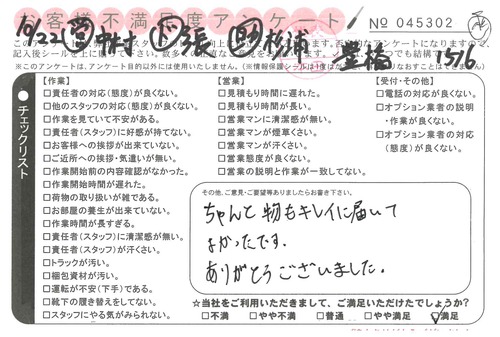 お客様不満足度アンケート
No 045302
10/22 営 中村 下張 現 杉浦
豊橋 1516
※このアンケートは、アンケート目的以外には使用いたしません。
チェックリスト
【作業】
□責任者の対応(態度)が良くない。
□他のスタッフの対応(態度)が良くない。
□作業を見ていて不安がある。
□責任者(スタッフ)に好感が持てない。
□お客様への挨拶が出来ていない。
□ご近所への挨拶・気遣いが無い。
□作業開始前の内容確認がなかった。
□作業開始時間が遅れた。
□荷物の取り扱いが雑である。
□お部屋の養生が出来ていない。
□作業時間が長すぎる。
□責任者(スタッフ)に清潔感が無い。
□責任者(スタッフ)が汗くさい。
□トラックが汚い。
□梱包資材が汚い。
□運転が不安(下手)である。
□靴下の履き替えをしてない。
□スタッフにやる気がみられない。
【営業】
□見積もり時間に遅れた。
□見積もり時間が長い。
□営業マンに清潔感が無い。
□営業マンが煙草くさい。
□営業マンが汗くさい。
□営業態度が良くない。
□営業の説明と作業が一致してない。
【受付・その他】
□電話の対応が良くない。
□オプション業者の説明
・作業が良くない。
□オプション業者の対応
(態度)が良くない。
その他、ご意見・ご要望等ありましたらお書き下さい。
ちゃんと物もキレイに届いて
よかったです。
ありがとうございました。
☆当社をご利用いただきまして、ご満足いただけたでしょうか?
□不満 □やや不満 □普通 □やや満足 ☑満足